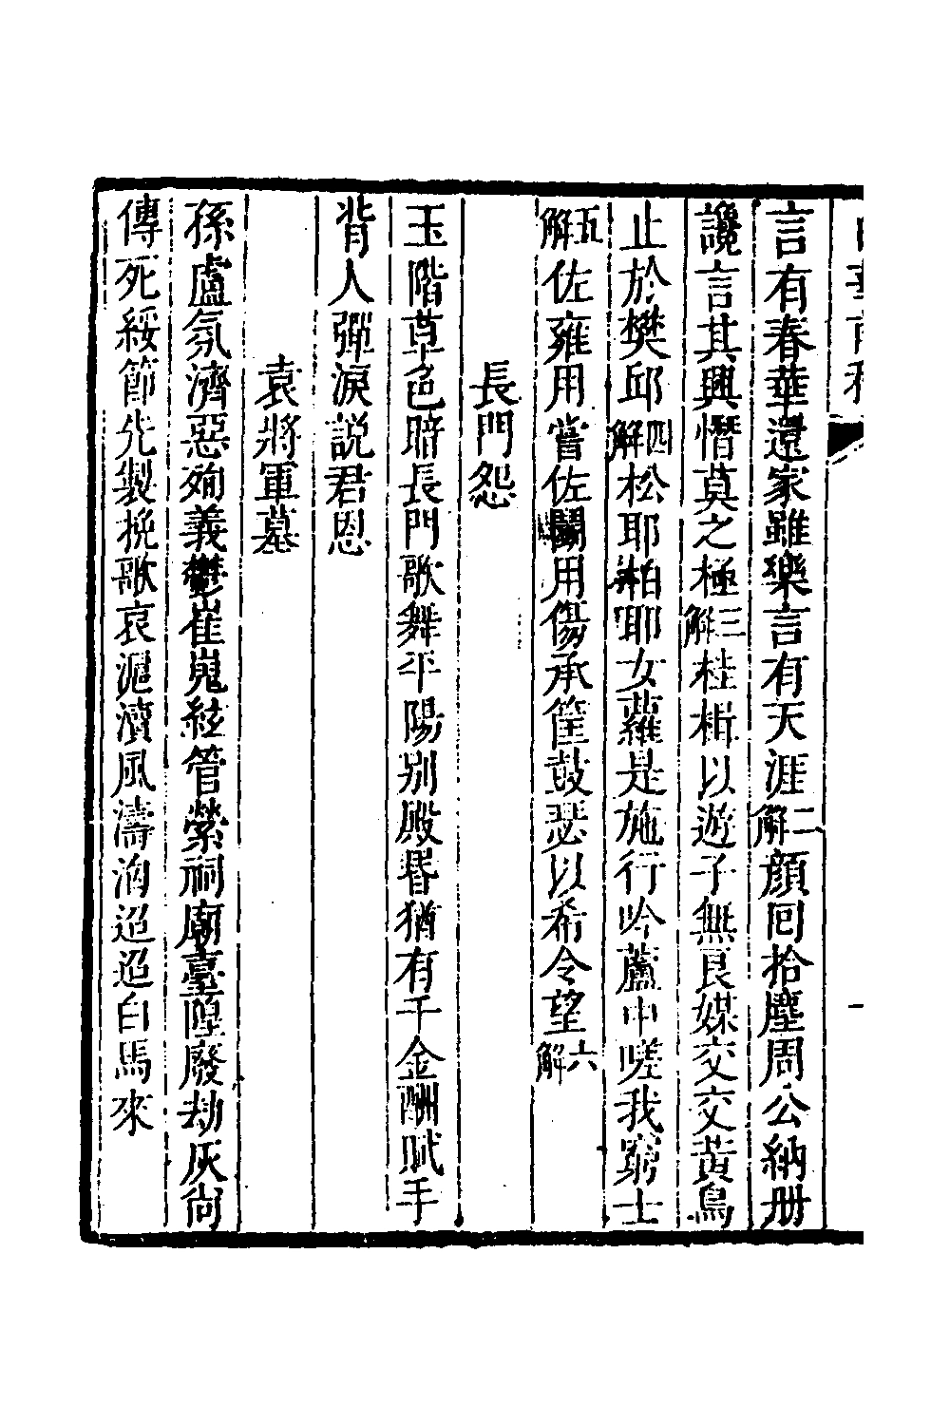 言有春華還家雖樂言有天涯二解顏回拾塵周公納册
讒言其興憯莫之極三解桂楫以遊子無良媒交交黃鳥
止於樊邱四解松耶柏耶女蘿是施行吟蘆中嗟我窮士
五解佐雍用嘗佐鬬用傷承筐鼓瑟以希令望六解
長門怨
玉階草色暗長門歌舞平陽別殿昏猶有千金酬賦手
背人彈淚説君恩
袁將軍墓
孫盧氛濟惡殉義鬱崔嵬絃管縈祠廟臺隍廢劫灰尙
傳死綏節先製挽歌哀滬瀆風濤洶迢迢白馬來